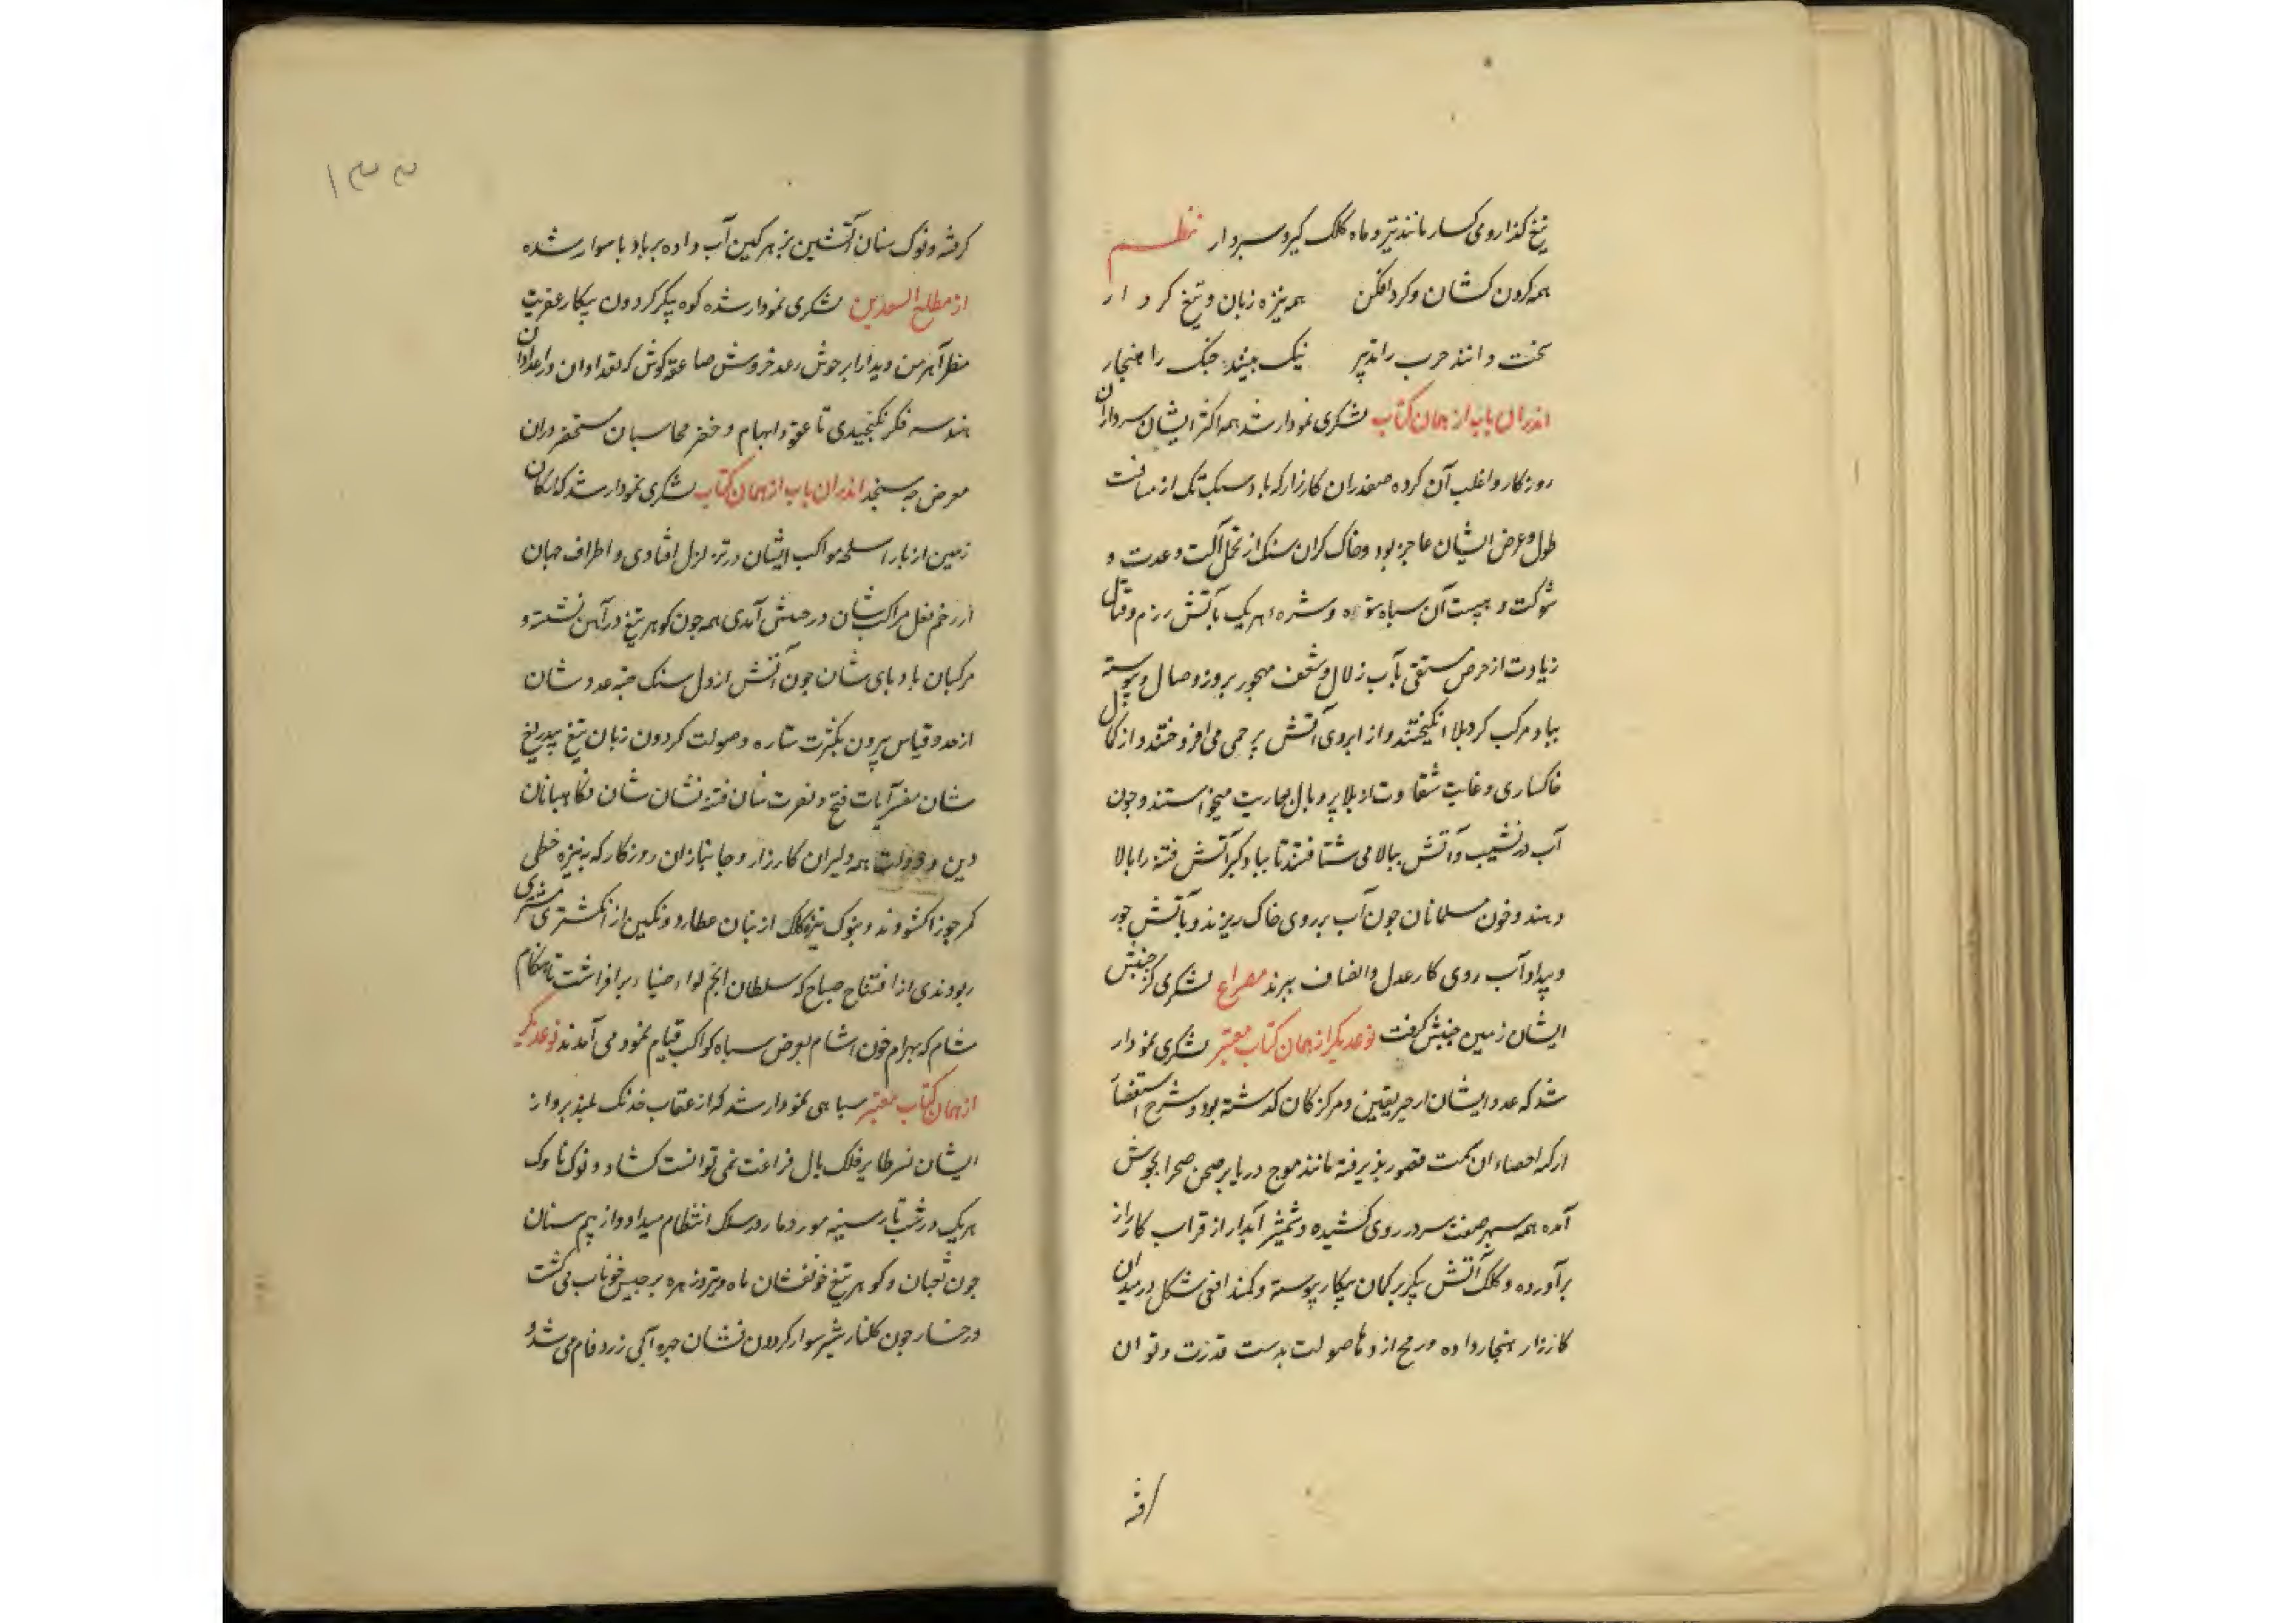 تیغ کذار و می کسار مانند تیر و ماه کلک کیر و سپردار نظم
همه کردن کشان و کرد افکن همه نیزه زبان و تیغ کردار
سخت دانند حرب را تدبیر نیک بینند جنک را هنجار
اندران باب از همان کتاب لشکری نمودار شد همه اکثر ایشان سرداران
روزکار و اغلب آن کرده صفدران کارزار که باد سبک تک از مسافت
طول و عرض ایشان عاجز بود و خاک کران سنک از تحمل آلت و عدت و
شوکت و هیبت آن سپاه ستوه و شره هریک بآتش رزم و قتال
زیادت از حرص مستقی بآب زلال و شعف مهجور بروز وصال و پیوسته
بباد مرکب کرد بلا انکیختند و از ابروی آتش پرچمی می افروختند و از کمال
خاکساری و غایت شقاوت از بلا پر و بال محاربت میخواستند و چون
آب در نشیب و آتش ببالا می شتافتند تا بباد کبر آتش فتنه را بالا
دهند و خون مسلمانان چون آب بر روی خاک ریزند و بآتش جور
و بیداد آب روی کار عدل و انصاف ببرند مصراع لشکری کز جنبش
ایشان زمین جنبش کرفت نوعدیکر از همان کتاب معتبر لشکری نمودار
شد که عدد ایشان از حیز یقین و مرکز کان کذشته بود و شرح استقصاء
از کمه احصاء ان سمت قصور پذیرفته مانند موج دریا بر صحن صحرا بجوش
آمده همه سپر صفت سر در روی کشیده و شمشیر آبدار از قراب کارزار
برآورده و کلک آتش پیکر بر کمان پیکار پیوسته و کمند افعی شکل در میدان
کارزار هنجار داده و رمح اژدها صولت بدست قدرت و توان
کرفته
۱۳۳
کرفته و نوک سنان آتشین بزهر کین آب داده بر باد پا سوار شده
از مطلع السعدین لشکری نمودار شده کوه پیکر کردون پیکار عفریت
منظر آهرمن دیدار ابر جوش رعد خروش صاعقه کوش که تعداد ان در اعداد ان
هندسه فکر نکنجیدی تا عقد ابهام و خنصر محاسبان مستحضر دران
معرض چه سنجد اندران باب از همان کتاب لشکری نمودار شد که ارکان
زمین از بار اسلحه مواکب ایشان در تزلزل افتادی و اطراف جهان
از زخم نعل مراکب شان در جنبش آمدی همه چون کوهر تیغ در آهن نشسته و
مرکبان باد پای شان چون آتش از دل سنک جسته عدد شان
از حد و قیاس بیرون بکثرت ستاره و صولت کردون زبان تیغ بیدریغ
شان مفسر آیات فتح و نصرت سنان فتنه نشان شان نکاهبانان
دین و دولت همه دلیران کارزار و جانبازان روزکار که به نیزه خطی
کمر جوزا کشودند و بنوک نیزه کلک از بنان عطارد و نکین از انکشتری مشتری
ربودندی از افتتاح صباح که سلطان انجم لواء ضیاء برافراشت تا هنکام
شام که بهرام خون اشام بعرض سپاه کواکب قیام نمود می آمدند نوعدیکر
از همان کتاب معتبر سپاهی نمودار شد که از عقاب خدنک بلند پرواز
ایشان نسر طایر فلک بال فراغت نمی توانست کشاد و نوک ناوک
هریک در شب تار سینه مور و مار در سلک انتظام میداد و از بیم سنان
چون ثعبان و کوهر تیغ خونفشان ماه و تیر و زهره برجیس خوناب می کشت
و رخسار چون کلنار شیر سوار کردون نشان چهره آبی زرد فام می شد و